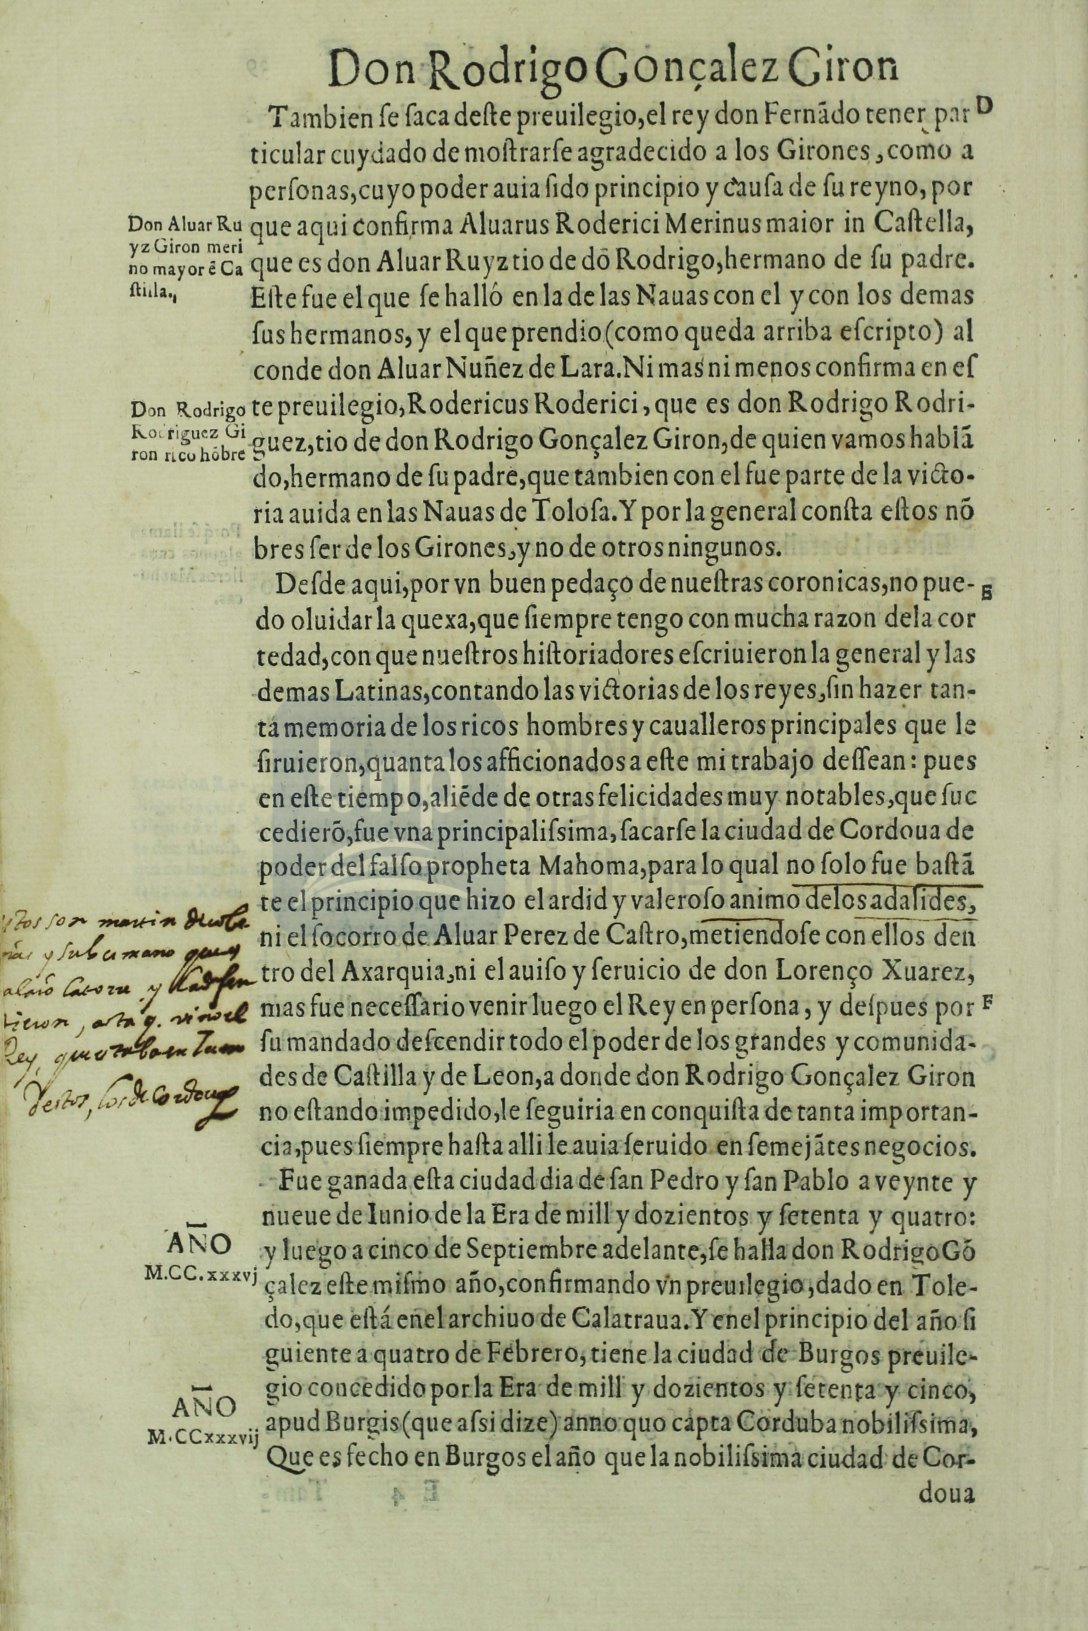 Don Rodrigo Gonçalez Giron
Tambien ſe ſaca deſte preuilegio, el rey don Fernādo tener par D
ticular cuydado de moſtrarſe agradecido a los Girones, como a
perſonas, cuyo poder auia ſido principio y cauſa de ſu reyno, por
Don Aluar Ru
yz Giron meri
no mayor ē Ca
ſtilla.
que aqui confirma Aluarus Roderici Merinus maior in Caſtella,
que es don Aluar Ruyz tio de dō Rodrigo, hermano de ſu padre.
Eſte fue el que ſe halló en la de las Nauas con el y con los demas
ſus hermanos, y el que prendio (como queda arriba eſcripto) al
conde don Aluar Nuñez de Lara. Ni mas ni menos confirma en eſ
Don Rodrigo
Rodriguez Gi
ron rico hōbre
te preuilegio, Rodericus Roderici, que es don Rodrigo Rodri-
guez, tio de don Rodrigo Gonçalez Giron, de quien vamos habiā
do, hermano de ſu padre, que tambien con el fue parte de la victo-
ria auida en las Nauas de Toloſa. Y por la general conſta eſtos nō
bres ſer de los Girones, y no de otros ningunos.
Deſde aqui, por vn buen pedaço de nueſtras coronicas, no pue- E
do oluidar la quexa, que ſiempre tengo con mucha razon dela cor
tedad, con que nueſtros hiſtoriadores eſcriuieron la general y las
demas Latinas, contando las victorias de los reyes, ſin hazer tan-
ta memoria de los ricos hombres y caualleros principales que le
ſiruieron, quanta los afficionados a eſte mi trabajo deſſean: pues
en eſte tiempo, aliēde de otras felicidades muy notables, que ſuc
cedierō, fue vna principaliſsima, ſacarſe la ciudad de Cordoua de
poder del falſo propheta Mahoma, para lo qual no ſolo fue baſtā
te el principio que hizo el ardid y valeroſo animo delos adalides,
ni el ſocorro de Aluar Perez de Caſtro, metiendoſe con ellos den
tro del Axarquia, ni el auiſo y ſeruicio de don Lorenço Xuarez,
mas fue neceſſario venir luego el Rey en perſona, y deſpues por F
ſu mandado deſcendir todo el poder de los grandes y comunida-
des de Caſtilla y de Leon, a donde don Rodrigo Gonçalez Giron
no eſtando impedido, le ſeguiria en conquiſta de tanta importan-
cia, pues ſiempre haſta alli le auia ſeruido en ſemejātes negocios.
son martin de
y su ermano
y
Rey,
destos, los de Cordoua
Fue ganada eſta ciudad dia de ſan Pedro y ſan Pablo a veynte y
nueue de Iunio de la Era de mill y dozientos y ſetenta y quatro:
AÑO
M.CC.xxxvj
y luego a cinco de Septiembre adelante, ſe halla don Rodrigo Gō
çalez eſte miſmo año, confirmando vn preuilegio, dado en Tole-
do, que eſtá enel archiuo de Calatraua. Y enel principio del año ſi
guiente a quatro de Febrero, tiene la ciudad de Burgos preuile-
gio concedido por la Era de mill y dozientos y ſetenta y cinco,
AÑO
M.CCxxxvij
apud Burgis (que aſsi dize) anno quo capta Corduba nobiliſsima,
Que es fecho en Burgos el año que la nobiliſsima ciudad de Cor-
doua